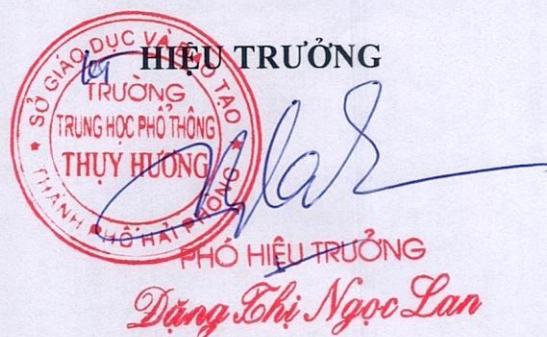 HIỆU TRƯỞNG
SỞ GIÁO DỤC VÀ ĐÀO TẠO
TRƯỜNG
TRUNG HỌC PHỔ THÔNG
THỤY HƯƠNG
THÀNH PHỐ HẢI PHÒNG
PHÓ HIỆU TRƯỞNG
Đặng Thị Ngọc Lan